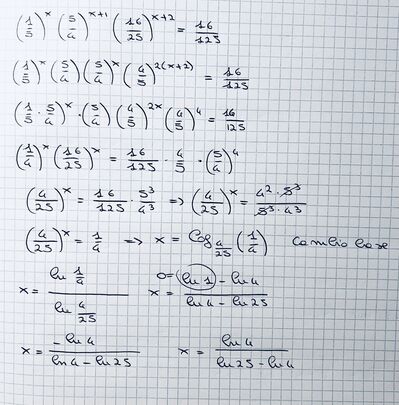 (1/5)^x (5/4)^(x+1) (16/25)^(x+2) = 16/125
(1/5)^x (5/4) (5/4)^x (4/5)^(2(x+2)) = 16/125
(1/5 · 5/4)^x · (5/4) (4/5)^(2x) (4/5)^4 = 16/125
(1/4)^x (16/25)^x = 16/125 · 4/5 · (5/4)^4
(4/25)^x = 16/125 · 5^3/4^3 => (4/25)^x = 4^2 · 5^3 / 5^3 · 4^3
(4/25)^x = 1/4 => x = log_(4/25) (1/4) cambio base
x = ln 1/4 / ln 4/25 x = 0= ln 1 - ln 4 / ln 4 - ln 25
x = -ln 4 / ln 4 - ln 25 x = ln 4 / ln 25 - ln 4